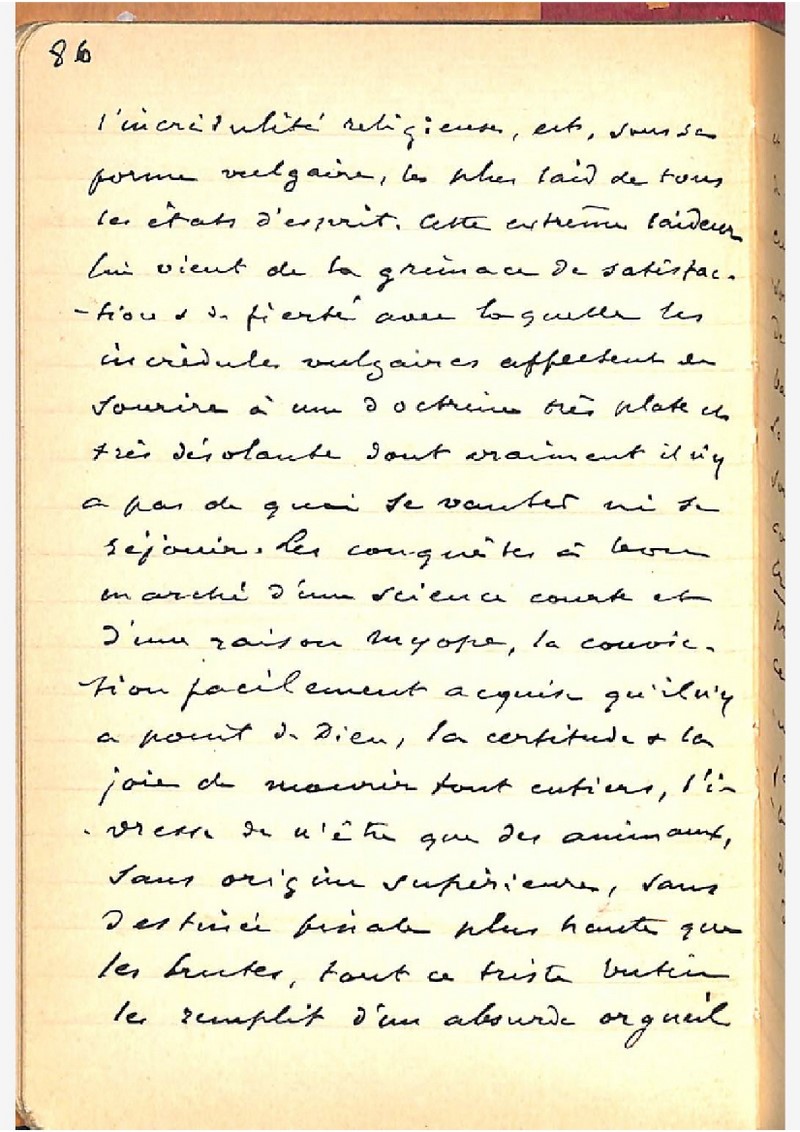 86
l'incrédulité religieuse, est, sous sa
forme vulgaire, le plus laid de tous
les états d'esprit. Cette extrême laideur
lui vient de la grimace de satisfac-
-tion & de fierté avec laquelle les
incrédules vulgaires affectent de
sourire à une doctrine très plate et
très désolante dont vraiment il n'y
a pas de quoi se vanter ni se
réjouir. Les conquêtes à bon
marché d'une science courte et
d'une raison myope, la convic-
-tion facilement acquise qu'il n'y
a point de Dieu, la certitude & la
joie de mourir tout entiers, l'i-
-vresse de n'être que des animaux,
sans origine supérieure, sans
destinée finale plus haute que
les brutes, tout ce triste butin
les remplit d'un absurde orgueil